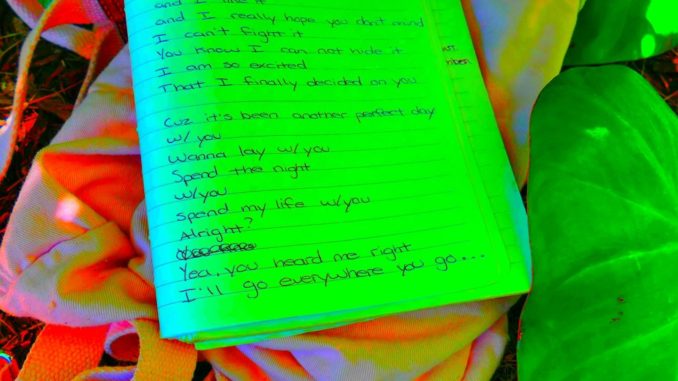 and I like it
and I really hope you don't mind
I can't fight it
You know I can not hide it
I am so excited
That I finally decided on you
Cuz it's been another perfect day
w/you
Wanna lay w/you
Spend the night
w/you
spend my life w/you
Alright?
Yea, you heard me right
I'll go everywhere you go...